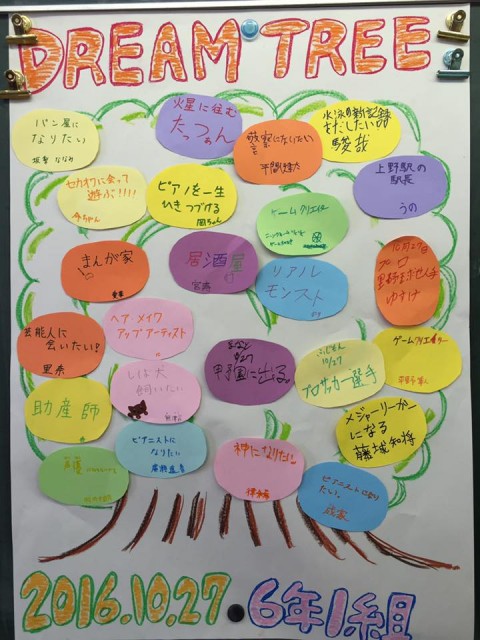 DREAM TREE
パン屋に
なりたい
火星に住む
たっつぁん
警察になりたい
水泳の新記録
をだしたい
駿哉
セカオワに会って
遊ぶ!!!!
ピアノを一生
ひきつづける
ゲームクリエイター
上野駅の
駅長
うの
まんが家
居酒屋
リアル
モンスト
10月27日
プロ
野球選手
ゆうすけ
芸能人に
会いたい!
里奈
ヘア・メイク
アップアーティスト
しば犬
飼いたい
甲子園に出る。
10/27
プロサッカー選手
ゲームクリエイター
助産師
ピアニストに
なりたい
神になりたい
メジャーリーガー
になる
藤城知将
声優
ピアニストになり
たい。
2016.10.27 6年1組